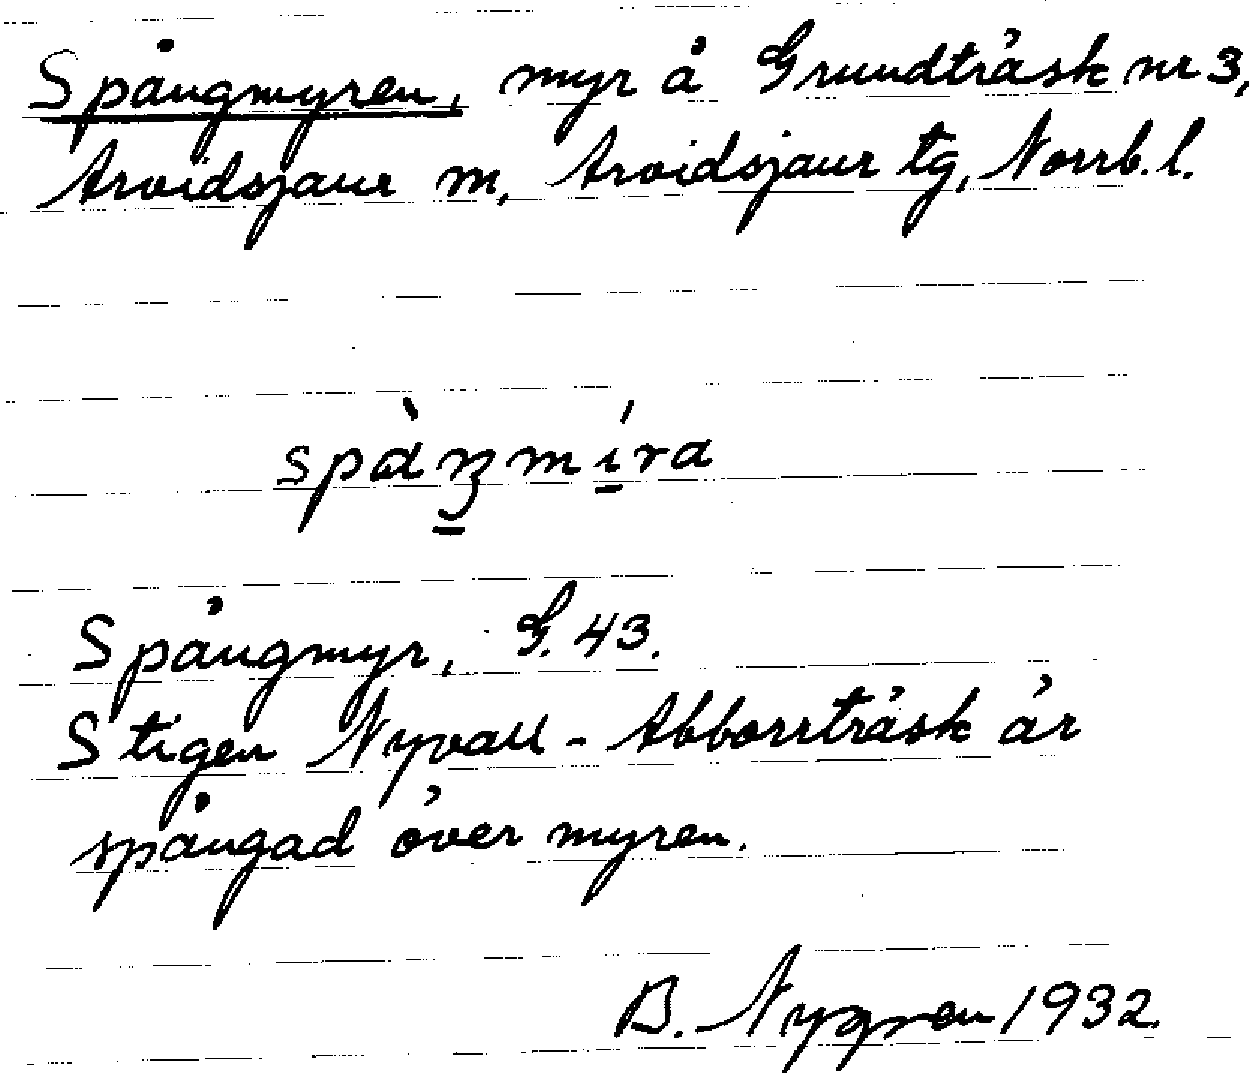 Spångmyren, myr å Grundträsk nr 3,
Arvidsjaur sn, Arvidsjaur tg, Norrb. l.
Spångmyr, G. 43.
Stigen Nyvall - Abborrträsk är
spångad över myren.
B. Nygren 1932.